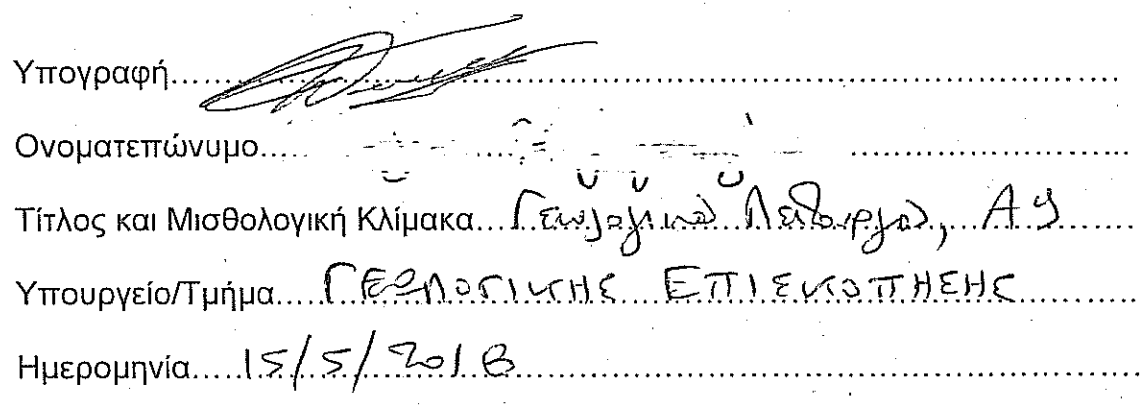 Υπογραφή
Ονοματεπώνυμο
Τίτλος και Μισθολογική Κλίμακα Γεωλογικός Λειτουργός, Α9
Υπουργείο/Τμήμα ΓΕΩΛΟΓΙΚΗΣ ΕΠΙΣΚΟΠΗΣΗΣ
Ημερομηνία 15/5/2018